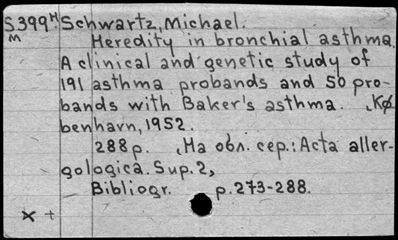 S399 H Schwartz, Michael.
M
Heredity in bronchial asthma.
A clinical and genetic study of
191 asthma probands and 50 pro-
bands with Baker's asthma. Kø
benhavn, 1952.
288p. На обл. сер.: Acta aller-
gologica. Sup. 2,
Bibliogr. p. 273-288.
x +